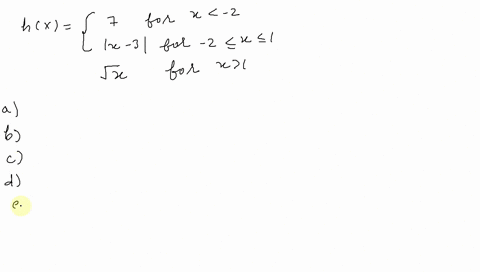 h(x) = { 7 for x < -2
|x - 3| for -2 ≤ x ≤ 1
√x for x > 1
a)
b)
c)
d)
e.